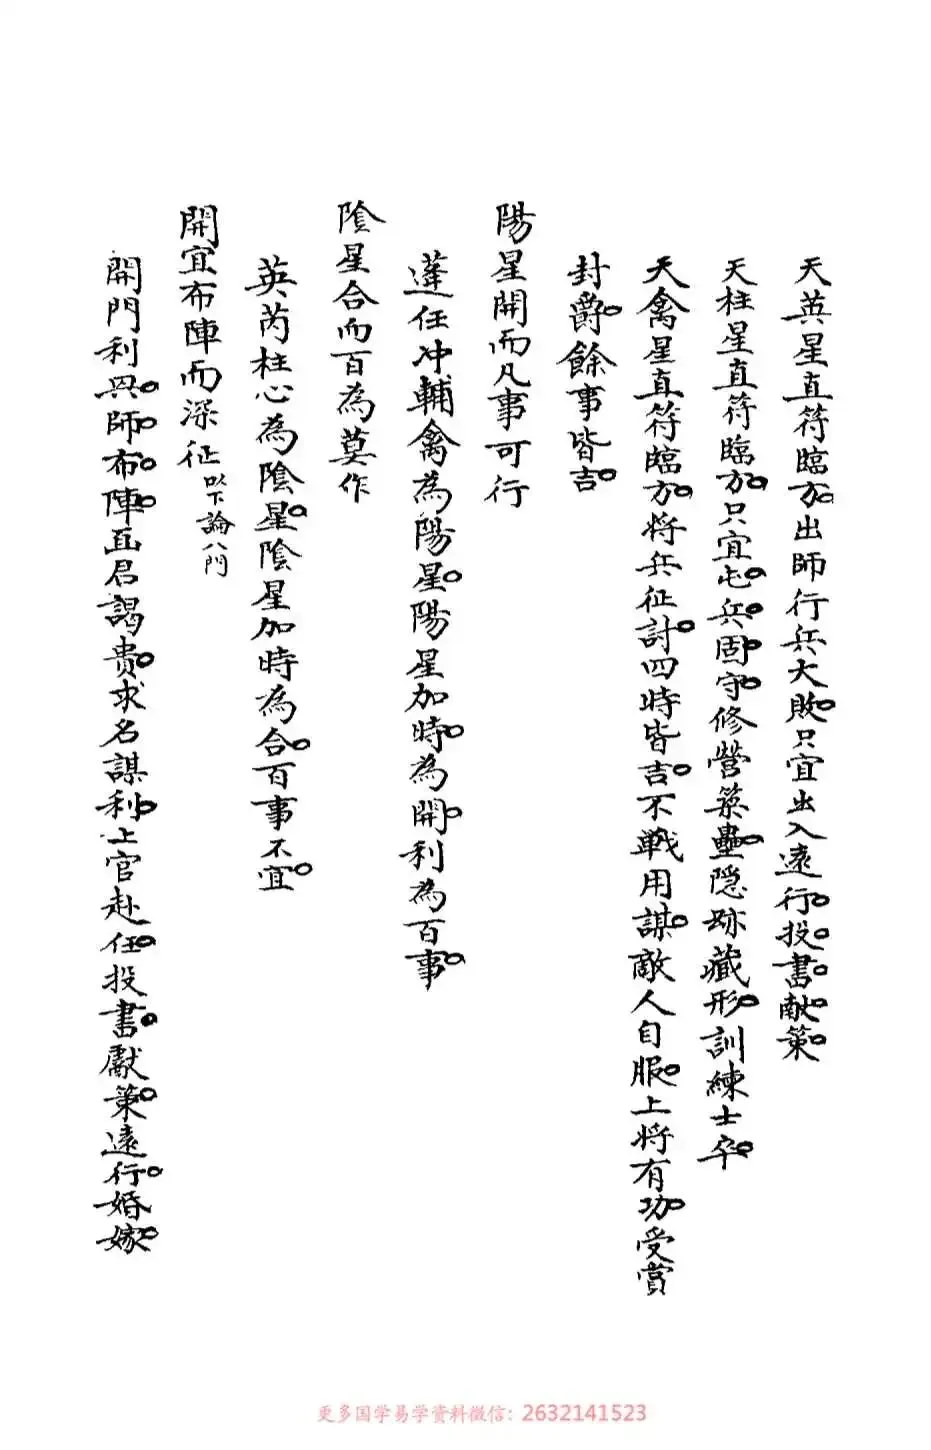 天英星直符臨方。出師行兵大敗。只宜出入遠行。投。書。献。策。
天柱星直符臨方。只宜屯。兵。固。守。修營築壘。隠跡藏形。訓練士卒。
天禽星直符臨方。将兵征討。四時皆吉。不戦用謀。敵人自服。上将有功。受賞
封爵。餘事皆吉。
陽星開而凡事可行
蓬任冲輔禽為陽星。陽星加時。為開。利為百事。
陰星合而百為莫作
英芮柱心為陰星。陰星加時為合。百事不宜。
開宜布陣而深征 以下論八門
開門利興。師。布。陣。面君謁貴。求名謀利。上官赴任。投書。獻策。遠行。婚嫁。
更多国学易学资料微信：2632141523